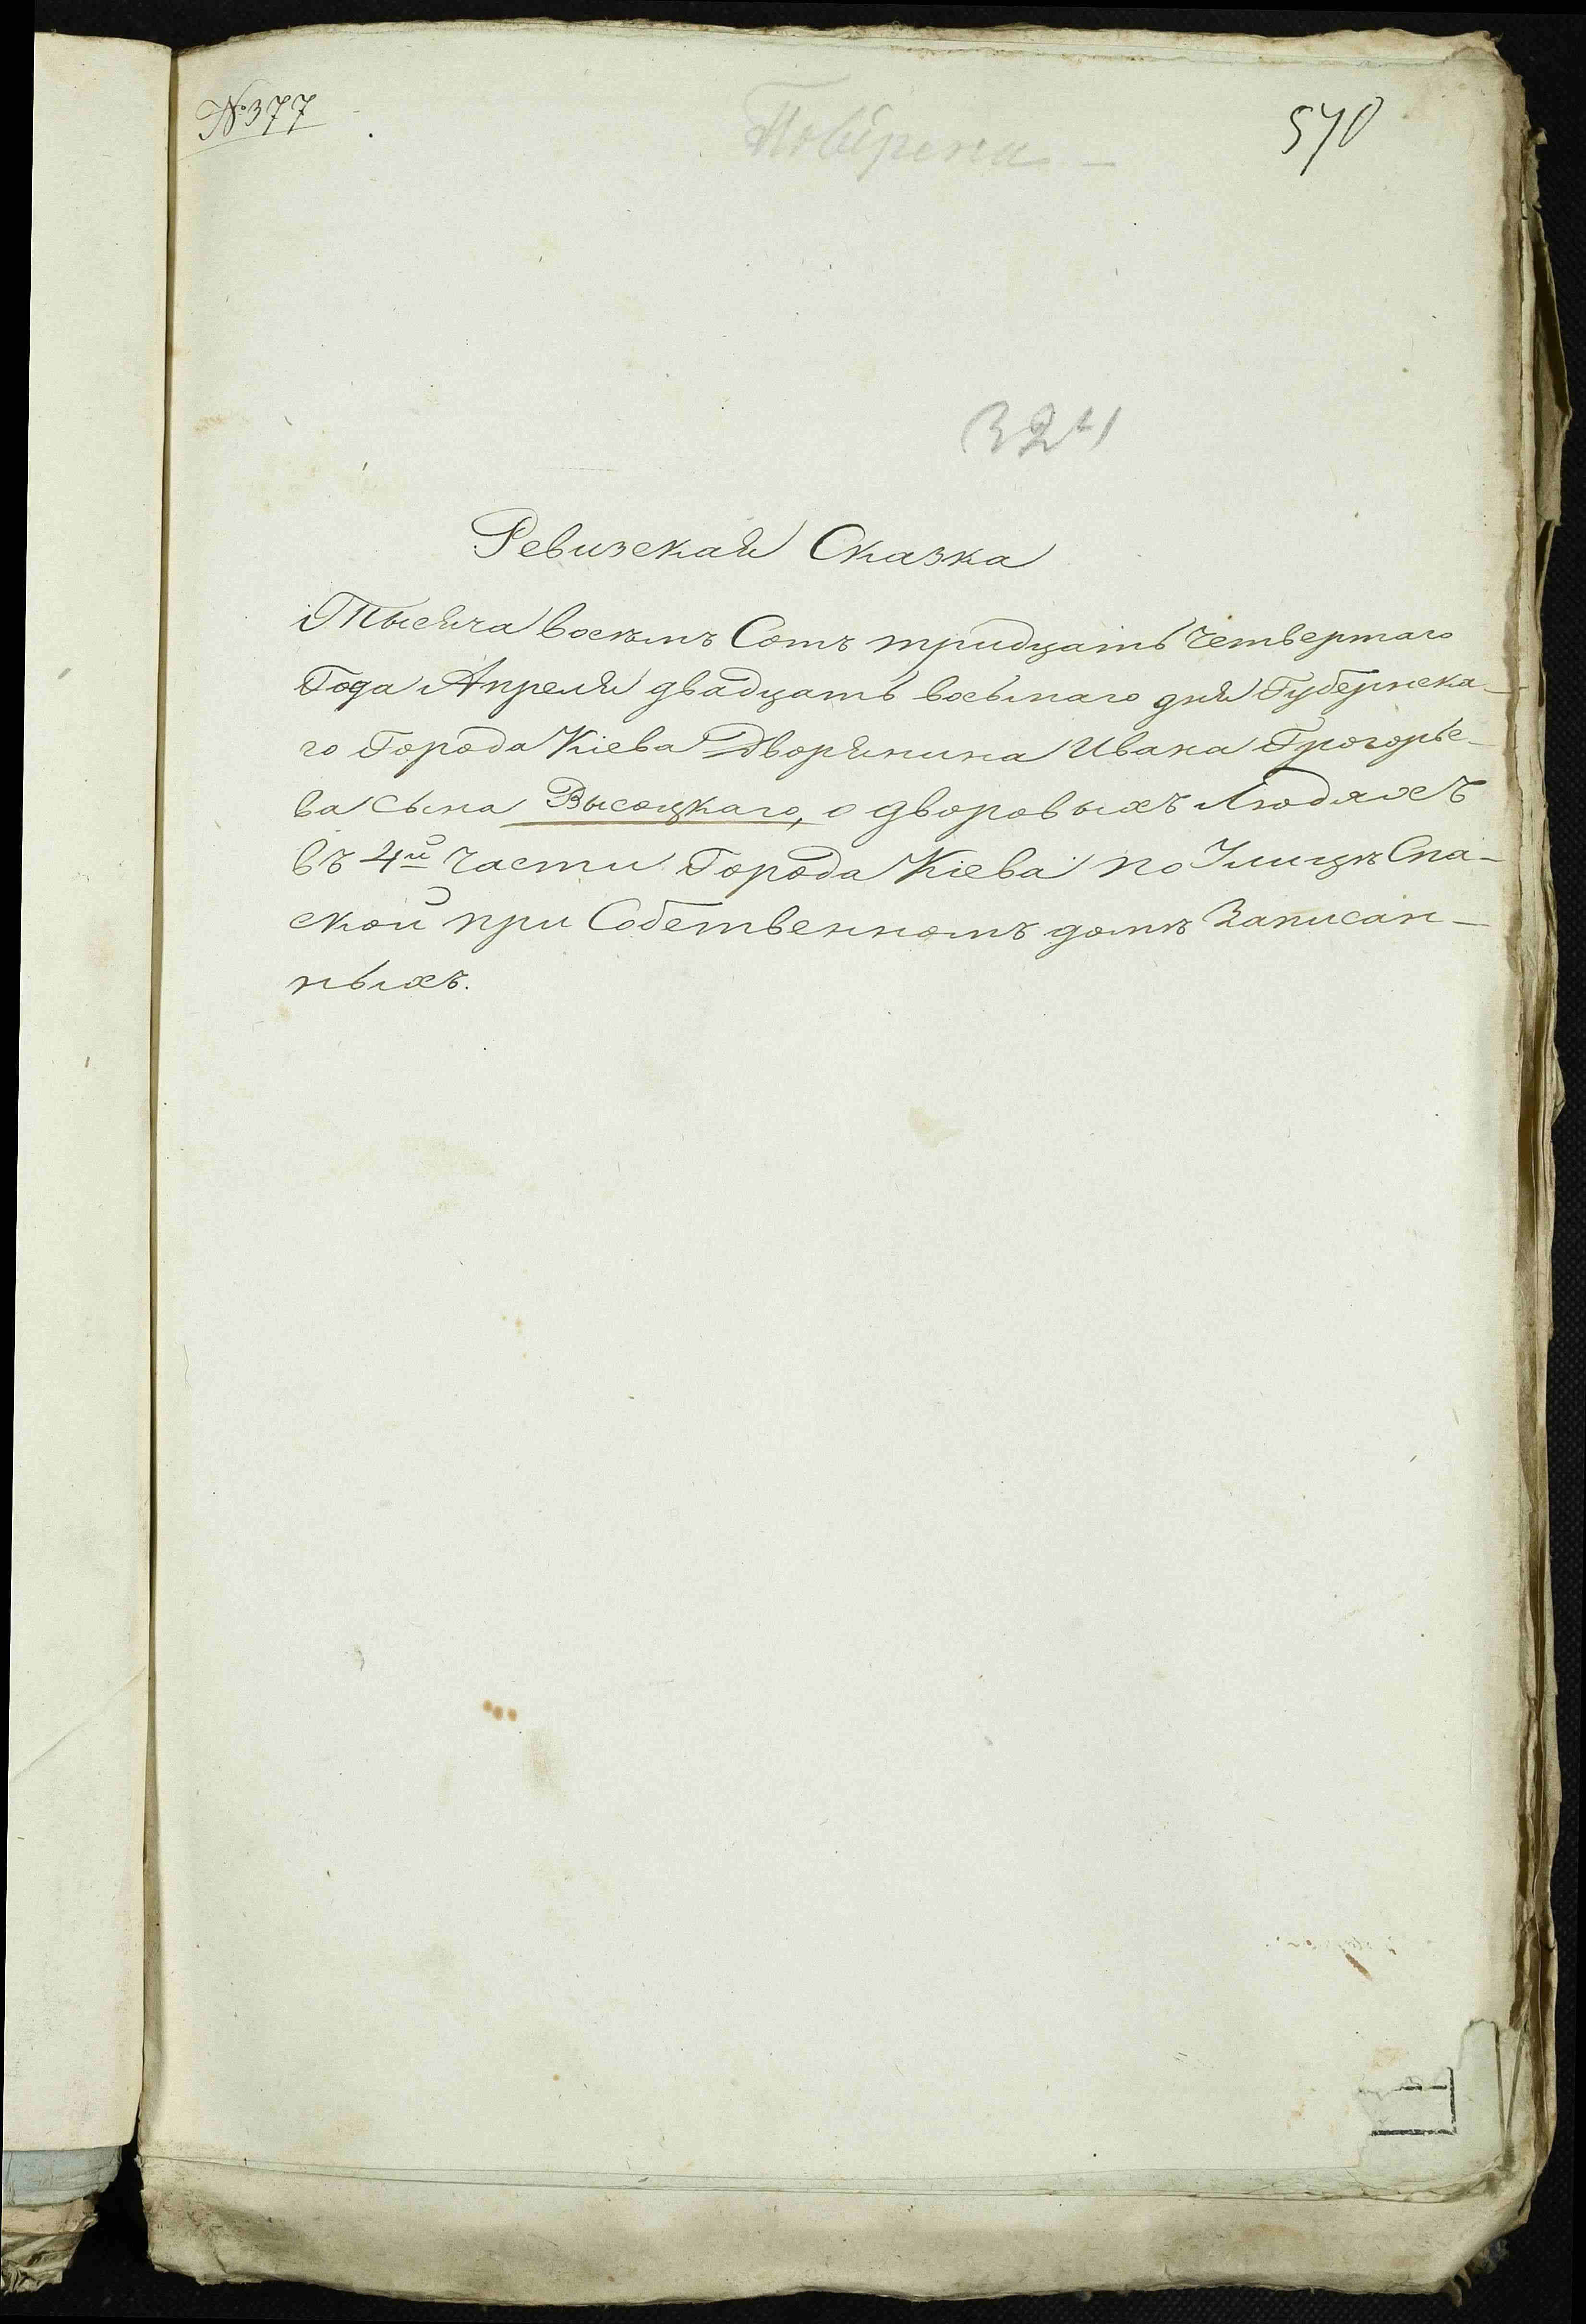 №377
Повѣрена —
570
324
Ревизская Сказка
Тысяча восемъ Сотъ тридцать Четвертаго
Года Апреля двадцать восьмаго дня Губернска-
го Города Кіева Дворянина Ивана Григорье-
ва сына Высоцкаго, о дворовыхъ Людяхъ
въ 4й части Города Кіева по Улицѣ Спа-
ской при Собственномъ домѣ Записан-
ныхъ.